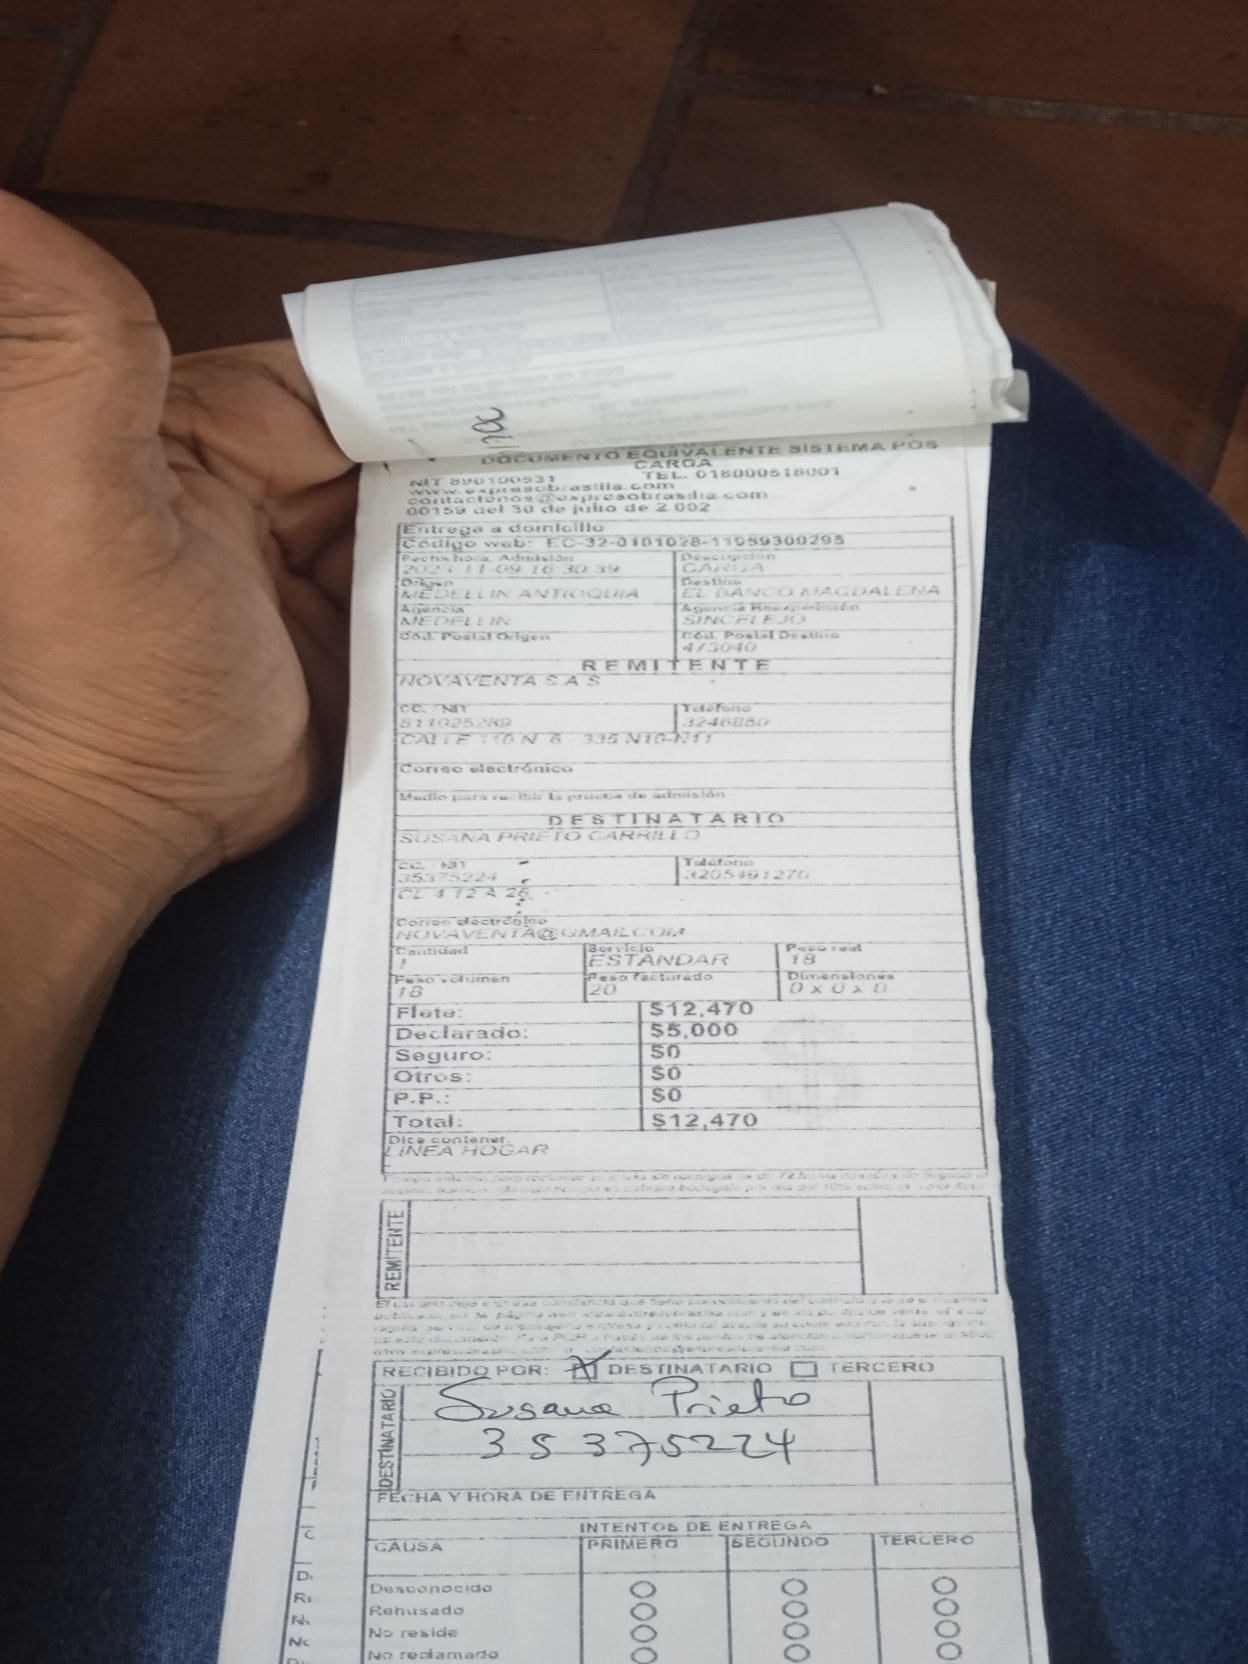 DOCUMENTO EQUIVALENTE SISTEMA POS
CARGA
NIT 890100531 TEL. 018000518001
www.expresobrasilia.com
contactenos@expresobrasilia.com
00159 del 30 de julio de 2 002
Entrega a domicilio
Código web: EC-32-0101028-11959300295
Fecha hora Admisión Descripción
2023-11-09 16:30:39 CARGA
Origen Destino
MEDELLIN ANTIOQUIA EL BANCO MAGDALENA
Agencia Agencia Reexpedición
MEDELLIN SINCELEJO
Cód. Postal Origen Cód. Postal Destino
473040
REMITENTE
NOVAVENTA S A S
CC. - NIT Teléfono
811025289 3246850
CALLE 110 N 6 - 335 N10-N11
Correo electrónico
Medio para recibir la prueba de admisión
DESTINATARIO
SUSANA PRIETO CARRILLO
CC. - NIT Teléfono
35375224 3205491270
CL 4 12 A 26
Correo electrónico
NOVAVENTA@GMAIL.COM
Cantidad Servicio Peso real
1 ESTANDAR 18
Peso volumen Peso facturado Dimensiones
18 20 0 x 0 x 0
Flete: $12,470
Declarado: $5,000
Seguro: $0
Otros: $0
P.P.: $0
Total: $12,470
Dice contener:
LINEA HOGAR
REMITENTE
RECIBIDO POR: DESTINATARIO TERCERO
DESTINATARIO
Susana Prieto
35375224
FECHA Y HORA DE ENTREGA
INTENTOS DE ENTREGA
CAUSA PRIMERO SEGUNDO TERCERO
Desconocido
Rehusado
No reside
No reclamado